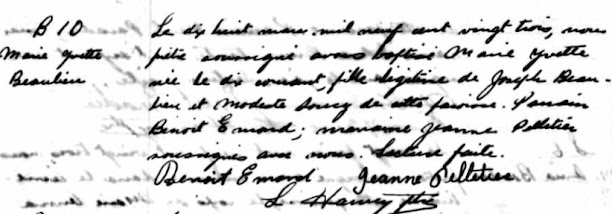 B 10
Marie Yvette
Beaulieu
Le dix huit mars mil neuf cent vingt trois, nous
prêtre soussigné avons baptisé Marie Yvette
née le dix courant, fille légitime de Joseph Beau-
lieu et Modeste Soucy de cette paroisse. Parrain
Benoit Emond; marraine Jeanne Pelletier
soussignés avec nous. Lecture faite.
Benoit Emond Jeanne Pelletier
L. ptre